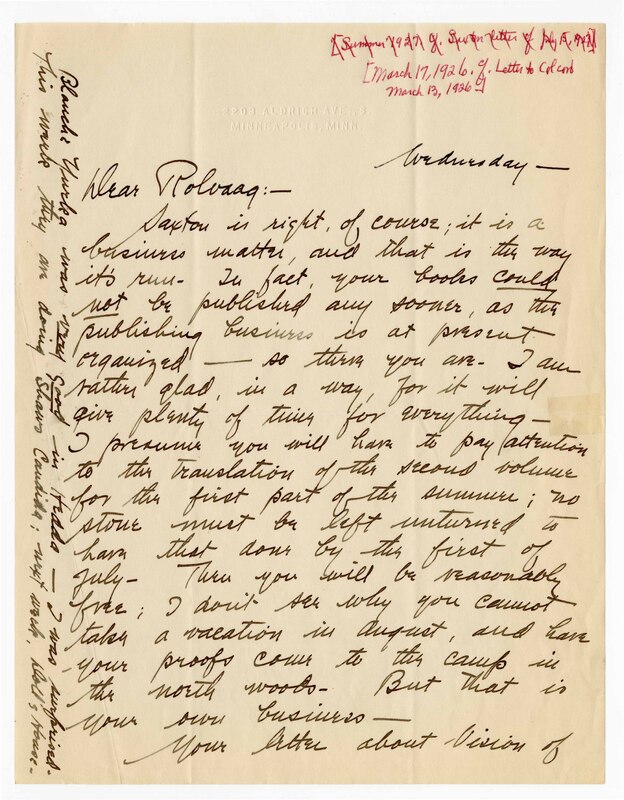 [Summer 1927 cf. Saxton letter of July 15, 1927]
[March 17, 1926. cf. Letter to Colcord
March 13, 1926]
3209 ALDRICH AVE., S.
MINNEAPOLIS, MINN.
Wednesday —
Dear Rolvaag:—
Saxton is right, of course; it is a
business matter, and that is the way
it's run. In fact, your books could
not be published any sooner, as the
publishing business is at present
organized — so there you are. I am
rather glad, in a way, for it will
give plenty of time for everything —
I presume you will have to pay attention
to the translation of the second volume
for the first part of the summer; no
stone must be left unturned to
have that done by the first of
July — Then you will be reasonably
free; I don't see why you cannot
take a vacation in August, and have
your proofs come to the camp in
the north woods — But that is
your own business —
Your letter about Vision of
Blanche Yurka was very good in Hedda — I was surprised.
This week they are doing Shaw's Candida; next week, Doll's House —